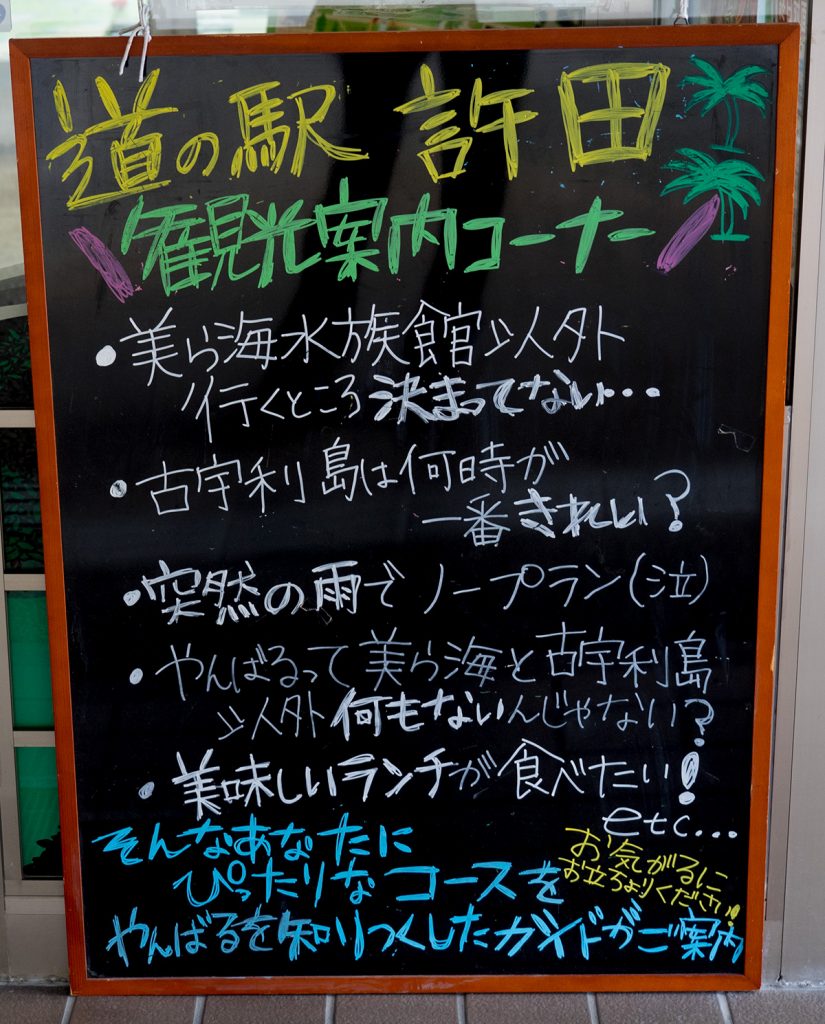 道の駅 許田
観光案内コーナー
・美ら海水族館以外
行くところ決まってない…
・古宇利島は何時が
一番きれい?
・突然の雨でノープラン(泣)
・やんばるって美ら海と古宇利島
以外何もないんじゃない?
・美味しいランチが食べたい!
etc...
そんなあなたに
ぴったりなコースを
やんばるを知りつくしたガイドがご案内
お気がるに
お立ちよりください!